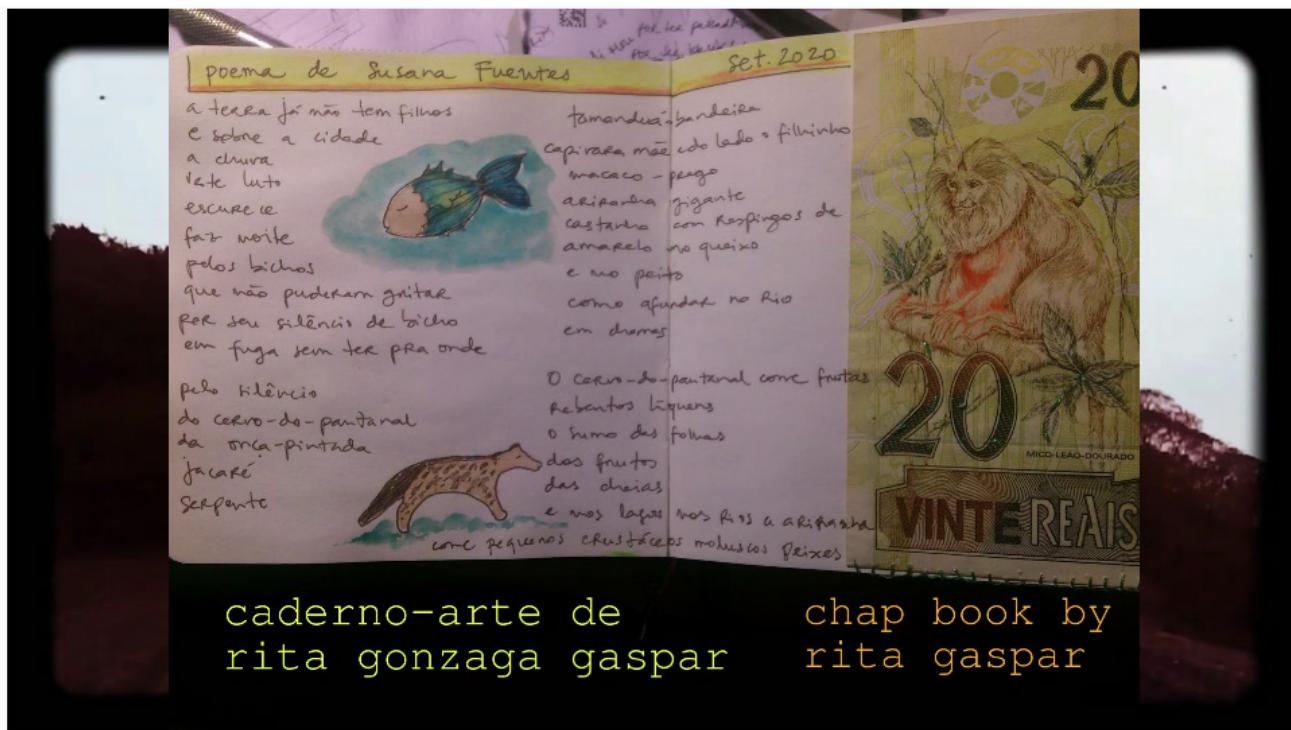 poema de Susana Fuentes
set. 2020
a terra já não tem filhos
e sobre a cidade
a chuva
veste luto
escurece
faz noite
pelos bichos
que não puderam gritar
por seu silêncio de bicho
em fuga sem ter pra onde
pelo silêncio
do cervo-do-pantanal
da onça-pintada
jacaré
serpente
tamanduá-bandeira
capivara mãe e do lado o filhinho
macaco-prego
ariranha gigante
castanho com respingos de
amarelo no queixo
e no peito
como afundar no rio
em chamas
O cervo-do-pantanal come frutas
rebentos líquens
o sumo das folhas
dos frutos
das cheias
e nos lagos nos rios a ariranha
come pequenos crustáceos moluscos peixes
20
20
MICO-LEÃO-DOURADO
VINTE REAIS
caderno-arte de
rita gonzaga gaspar
chap book by
rita gaspar